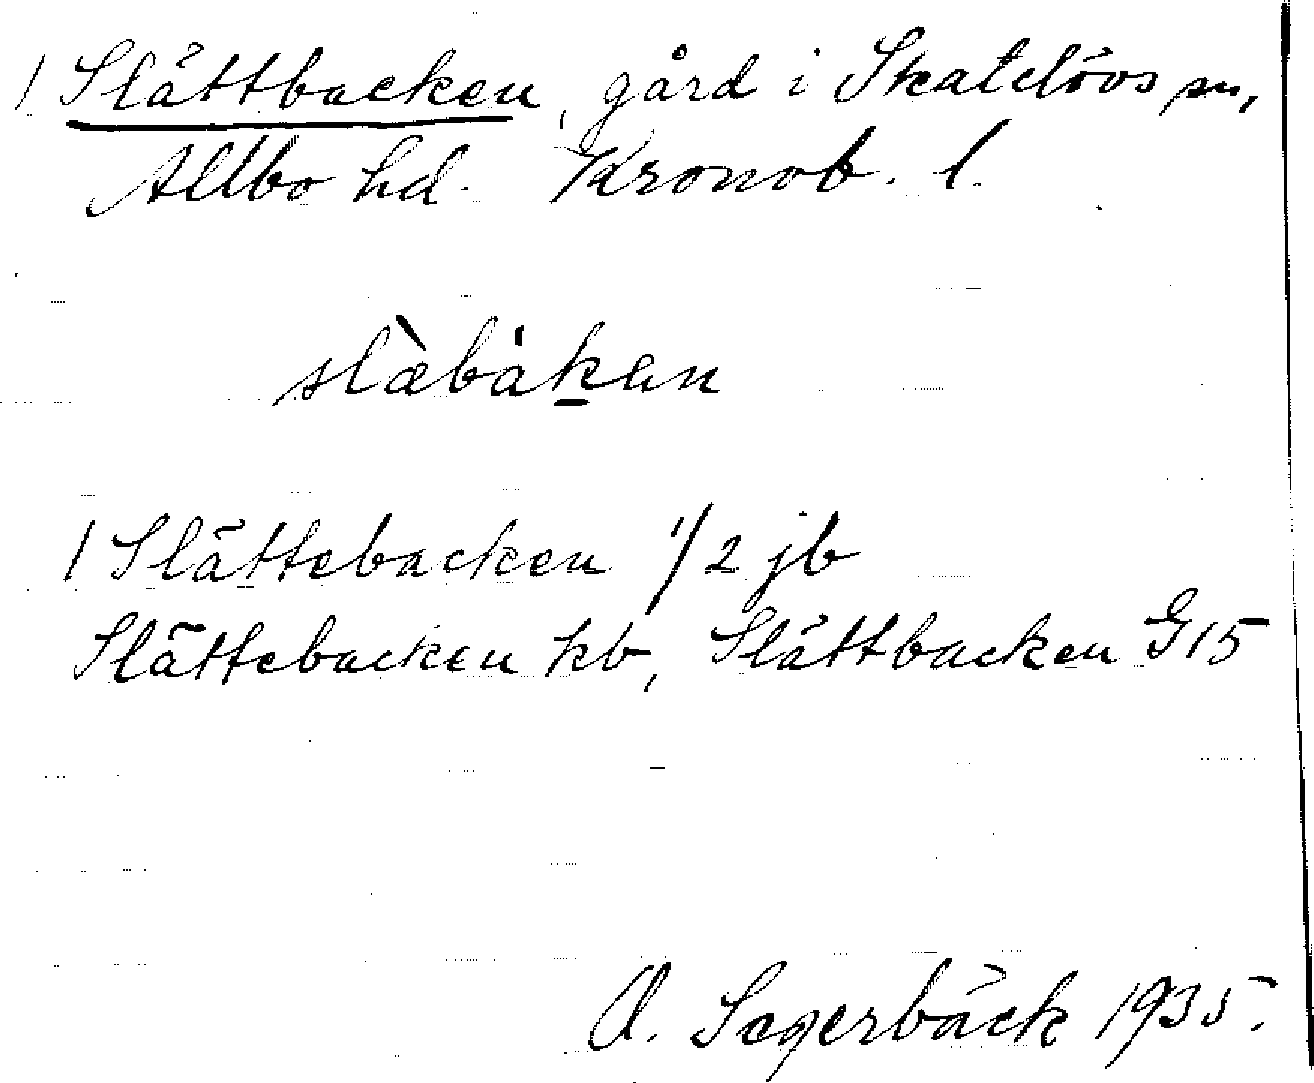 / Slättbacken, gård i Skatelövs sn,
Allbo hd. Kronob. l.
slæ̀bákan
/ Slättebacken 1/2 jb
Slättebacken kb, Slättbacken G15
A. Segerbäck 1935.